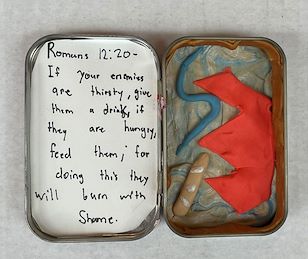 Romans 12:20-
If your enemies
are thirsty, give
them a drink, if
they are hungry,
feed them; for
doing this they
will burn with
Shame.